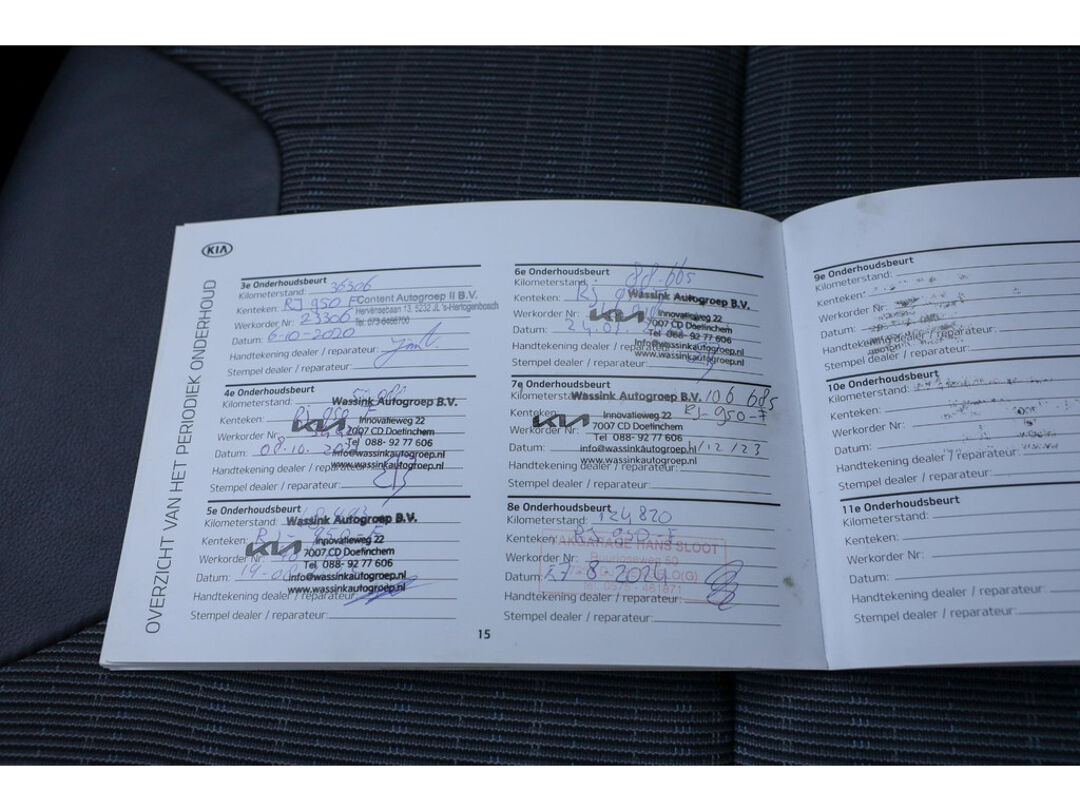 KIA
OVERZICHT VAN HET PERIODIEK ONDERHOUD
3e Onderhoudsbeurt
Kilometerstand: 36306
Kenteken: RJ 950 F
Content Autogroep II B.V.
Hervensebaan 13, 5232 JL 's-Hertogenbosch
Werkorder Nr: 23306
Datum: 6-10-2020
Handtekening dealer / reparateur:
Stempel dealer / reparateur:
4e Onderhoudsbeurt
Kilometerstand:
Wassink Autogroep B.V.
Kenteken: RJ 950 F
KIA
Innovatieweg 22
7007 CD Doetinchem
Werkorder Nr:
Tel 088- 92 77 606
Datum: 08-10-
info@wassinkautogroep.nl
www.wassinkautogroep.nl
Handtekening dealer / reparateur:
Stempel dealer / reparateur:
5e Onderhoudsbeurt
Kilometerstand:
Wassink Autogroep B.V.
Kenteken: RJ-950-F
KIA
Innovatieweg 22
7007 CD Doetinchem
Werkorder Nr:
Tel 088- 92 77 606
Datum: 19-08-
info@wassinkautogroep.nl
www.wassinkautogroep.nl
Handtekening dealer / reparateur:
Stempel dealer / reparateur:
15
6e Onderhoudsbeurt
Kilometerstand: 88.665
Kenteken: RJ
Wassink Autogroep B.V.
KIA
Innovatieweg 22
7007 CD Doetinchem
Werkorder Nr:
Tel 088- 92 77 606
Datum: 24.01
info@wassinkautogroep.nl
www.wassinkautogroep.nl
Handtekening dealer / reparateur:
Stempel dealer / reparateur:
7e Onderhoudsbeurt
Kilometersta
Wassink Autogroep B.V. 106 685
Kenteken: RJ-950-F
KIA
Innovatieweg 22
7007 CD Doetinchem
Werkorder Nr:
Tel 088- 92 77 606
Datum: 4/12/23
info@wassinkautogroep.nl
www.wassinkautogroep.nl
Handtekening dealer / reparateur:
Stempel dealer / reparateur:
8e Onderhoudsbeurt
Kilometerstand: 124820
Kenteken: RJ-950-F
VAKGARAGE HANS SLOOT
Buurloseweg 50
Werkorder Nr:
Datum: 27-8-2024
461871
Handtekening dealer / reparateur:
Stempel dealer / reparateur:
9e Onderhoudsbeurt
Kilometerstand:
Kenteken:
Werkorder Nr:
Datum:
Handtekening dealer / reparateur:
Stempel dealer / reparateur:
10e Onderhoudsbeurt
Kilometerstand:
Kenteken:
Werkorder Nr:
Datum:
Handtekening dealer / reparateur:
Stempel dealer / reparateur:
11e Onderhoudsbeurt
Kilometerstand:
Kenteken:
Werkorder Nr:
Datum:
Handtekening dealer / reparateur:
Stempel dealer / reparateur: